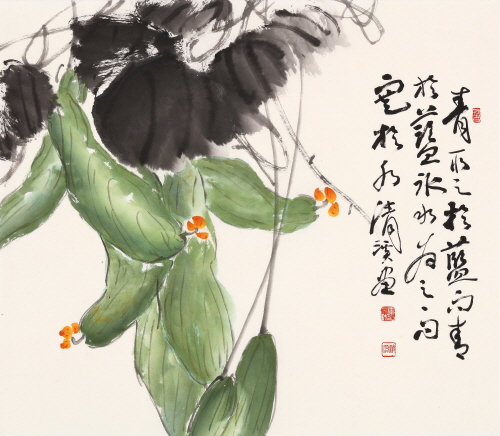 青取之於藍而青
於藍氷水為之而
寒於水清溪畫